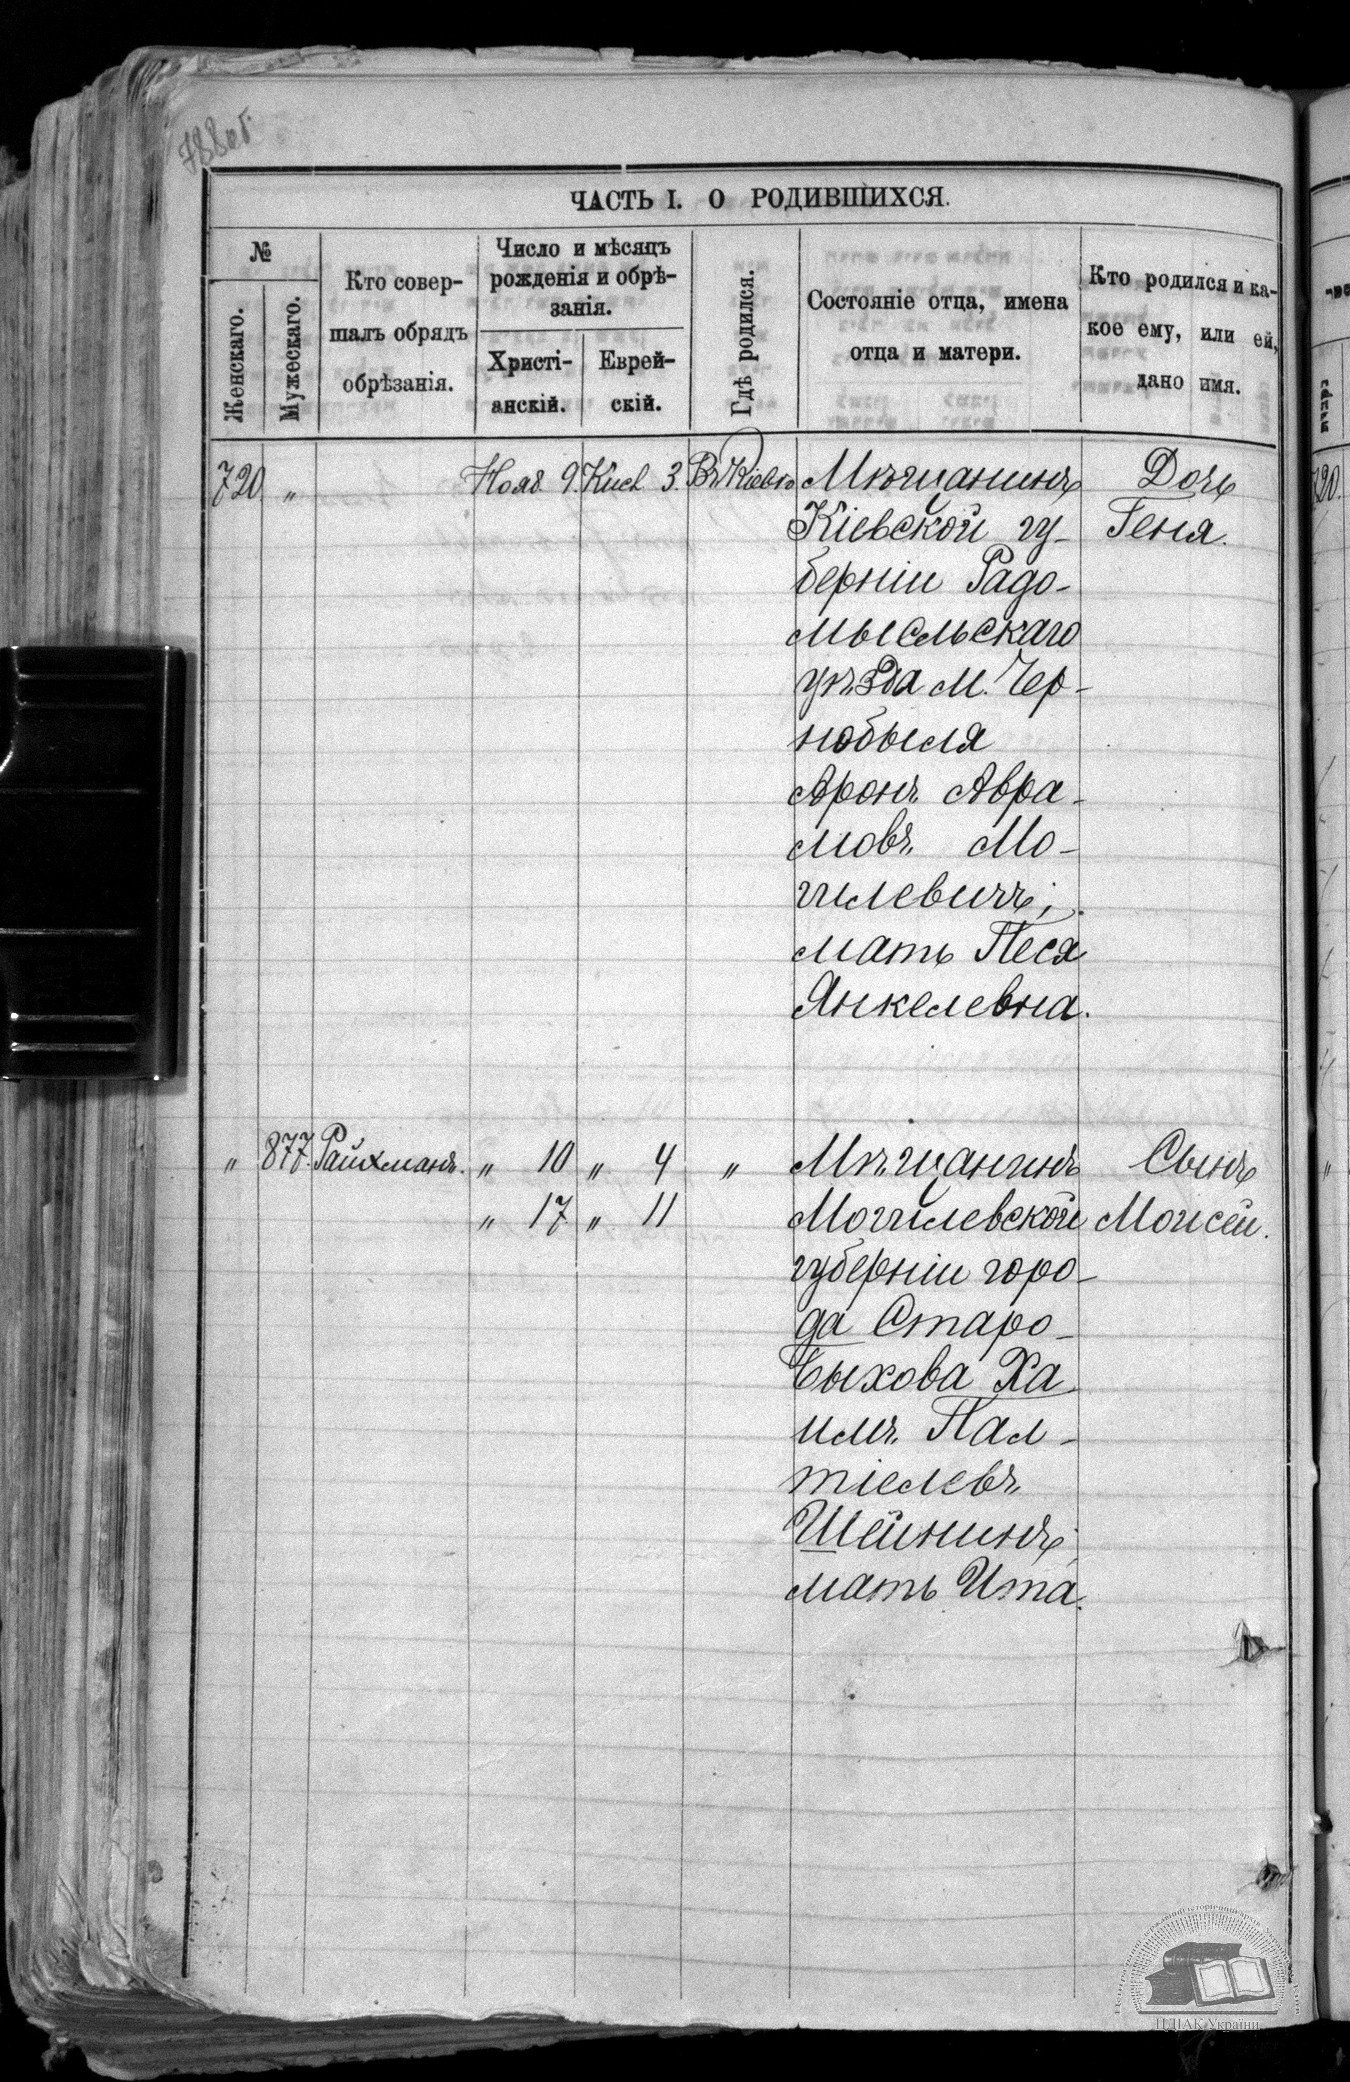 788об.
ЧАСТЬ I. О РОДИВШИХСЯ.
№
Женскаго.
Мужескаго.
Кто совер-
шалъ обрядъ
обрѣзанія.
Число и мѣсяцъ
рожденія и обрѣ-
занія.
Христі-
анскій.
Еврей-
скій.
Гдѣ родился.
Состояніе отца, имена
отца и матери.
Кто родился и ка-
кое ему, или ей,
дано имя.
720 " Нояб. 9. Кисл. 3. Въ Кіевѣ Мѣщанинъ Дочь
Кіевской гу- Геня.
берніи Радо-
мысльскаго
уѣзда м. Чер-
нобыля
Аронъ Авра-
мовъ Мо-
гилевичъ;
мать Песя
Янкелевна.
" 877. Райхманъ. " 10 " 4 " Мѣщанинъ Сынъ
" 17 " 11 Могилевской Моисей.
губерніи горо-
да Старо-
Быхова Ха-
имъ Пал-
тіелевъ
Шейнинъ;
мать Ита.
720.
ЦДІАК України